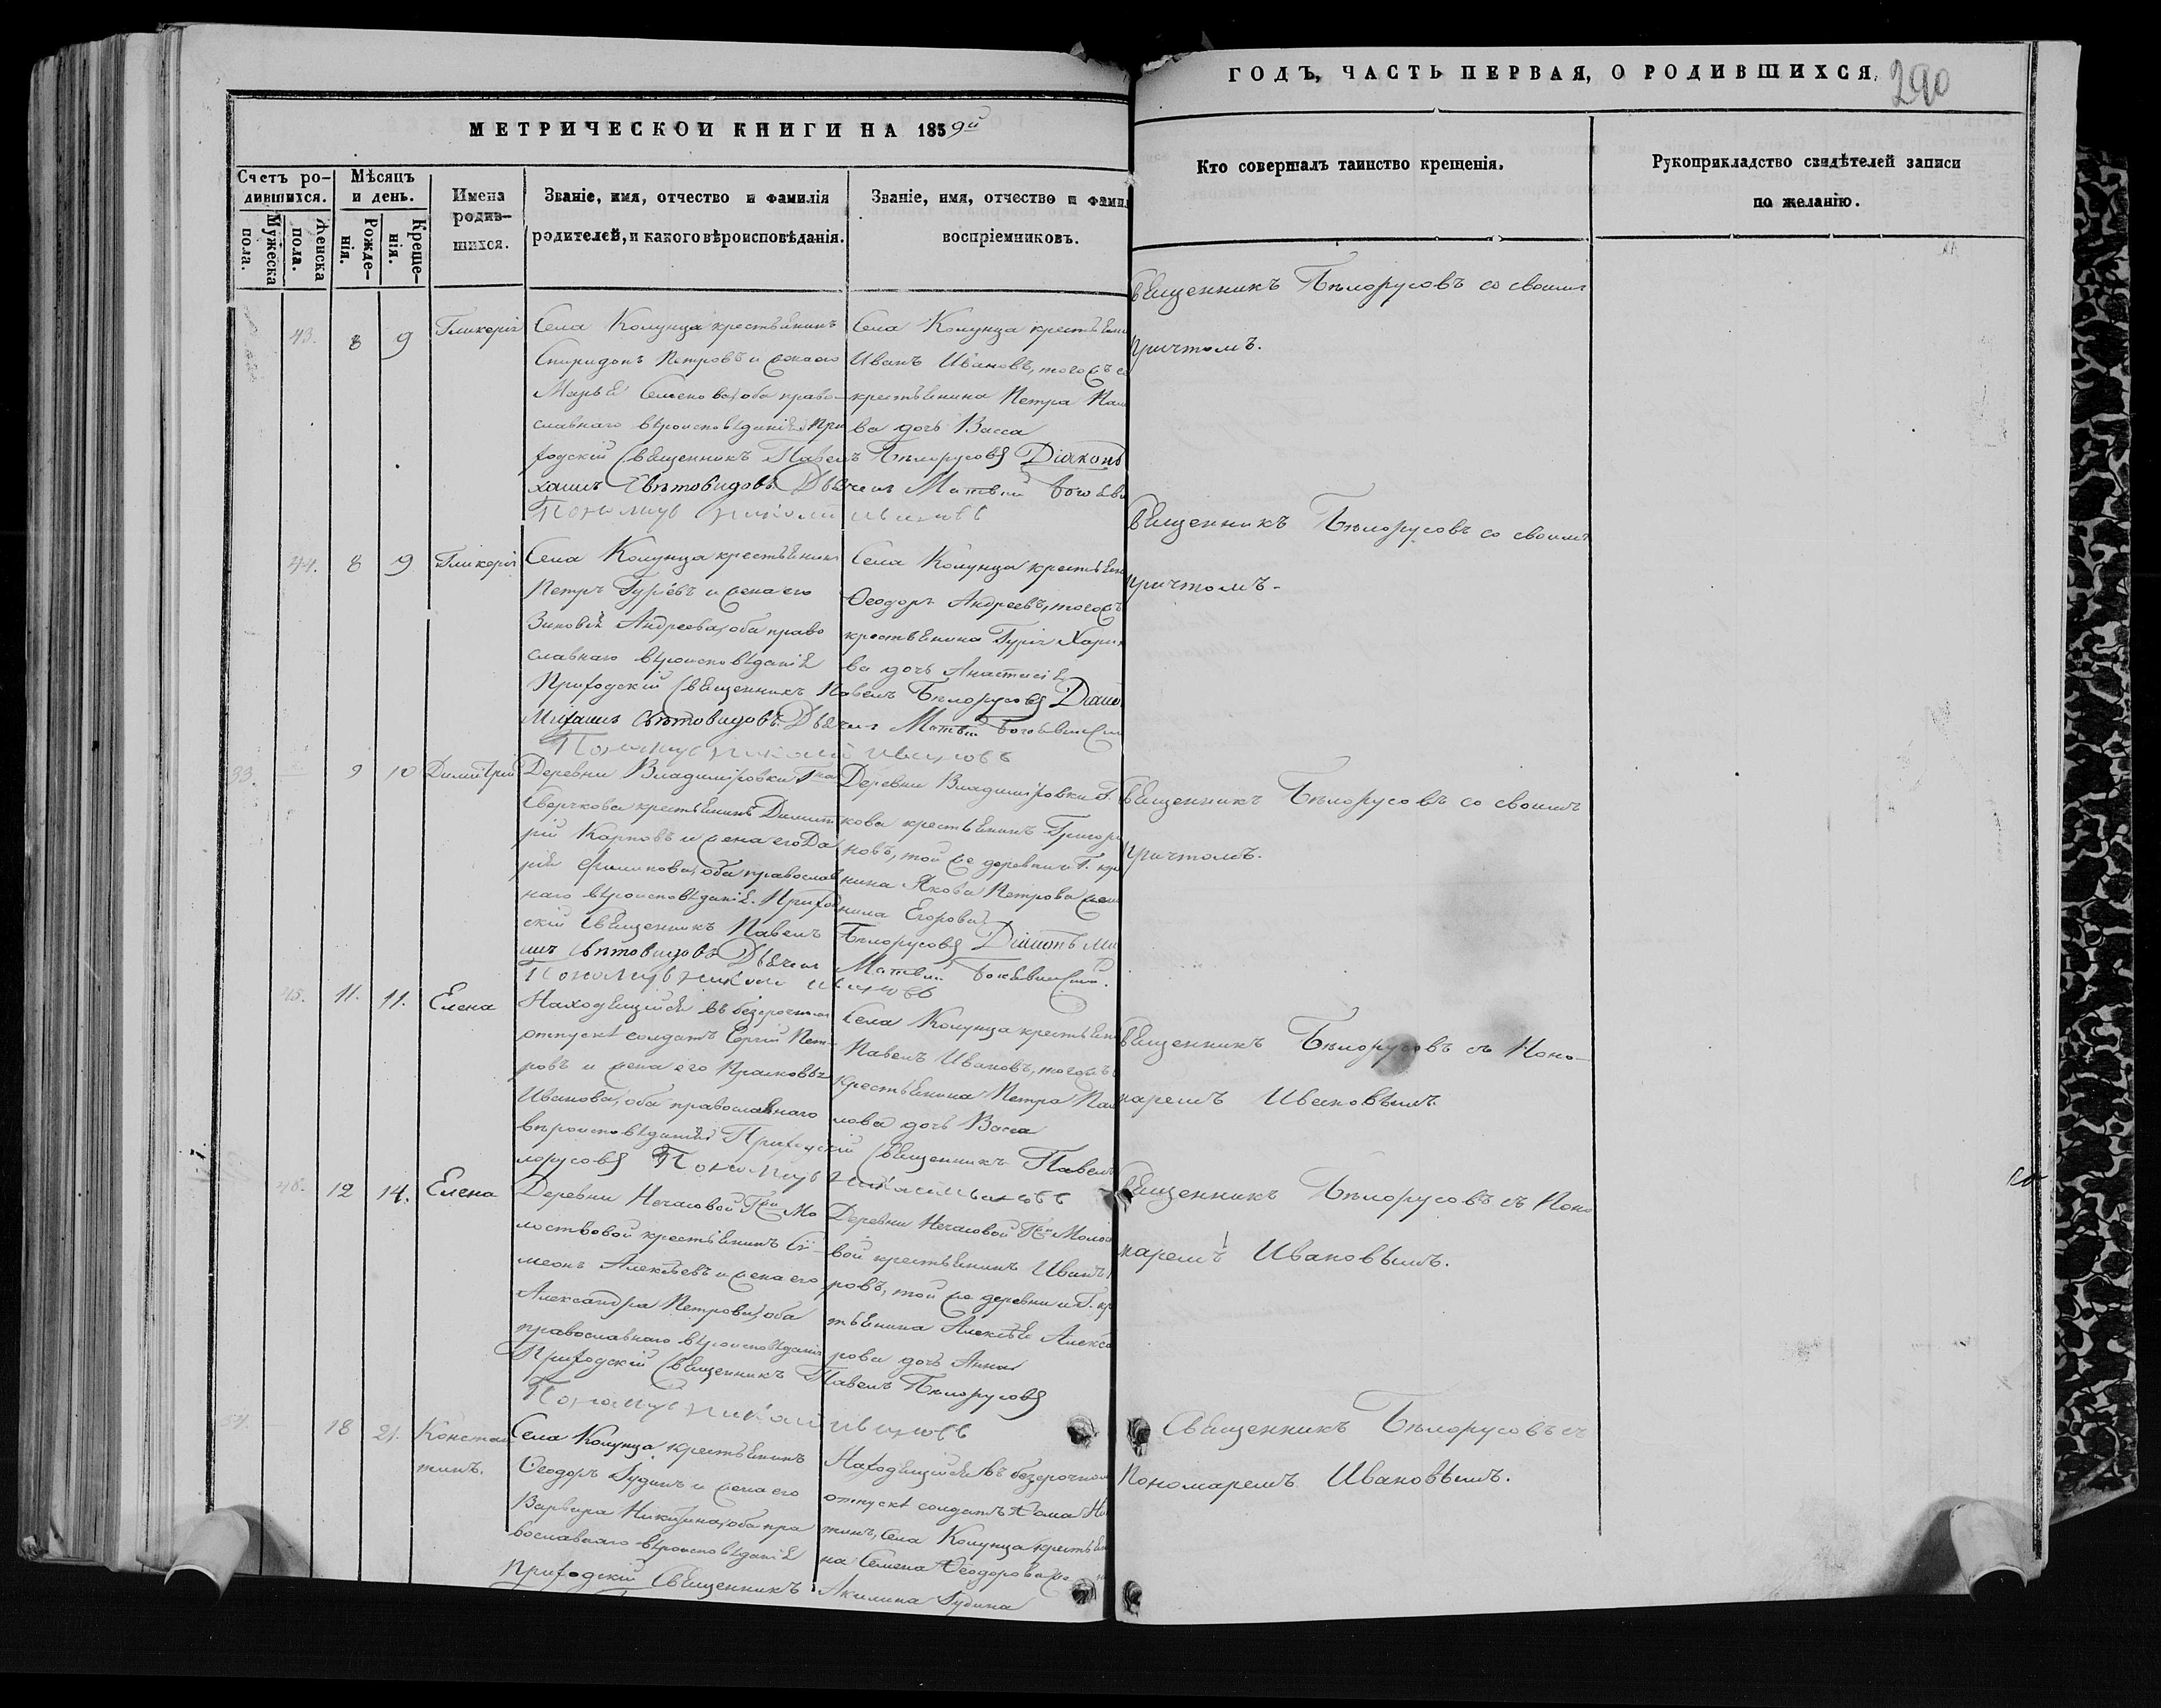 МЕТРИЧЕСКОЙ КНИГИ НА 1859й
ГОДЪ, ЧАСТЬ ПЕРВАЯ, О РОДИВШИХСЯ.
290
Счетъ ро-
дившихся.
Мужеска
пола.
Женска
пола.
Мѣсяцъ
и день.
Рожде-
нія.
Креще-
нія.
Имена
родив-
шихся.
Званіе, имя, отчество и фамилія
родителей, и какого вѣроисповѣданія.
Званіе, имя, отчество и фами
воспріемниковъ.
Кто совершалъ таинство крещенія.
Рукоприкладство свидѣтелей записи
по желанію.
43. 8 9
Гликерія
Села Колунца крестьянинъ
Спиридонъ Петровъ и жена его
Марья Семенова, оба право-
славнаго вѣроисповѣданія. При
ходскій Священникъ Павелъ Бѣлорусовъ Діаконъ
хаилъ Свѣтовидовъ Дьячекъ Матвѣй
Пономарь Николай Ивановъ
Села Колунца крестьяни
Иванъ Ивановъ, тогожъ се
крестьянина Петра Пав
ва дочь Васса
Священникъ Бѣлорусовъ со своимъ
причтомъ.
44. 8 9
Гликерія
Села Колунца крестьянинъ
Петръ Гурьевъ и жена его
Зиновія Андреева, оба право
славнаго вѣроисповѣданія
Приходскій Священникъ Павелъ Бѣлорусовъ Діако
Михаилъ Свѣтовидовъ. Дьячекъ Матвѣй
Пономарь Николай Ивановъ
Села Колунца крестьяни
Ѳеодоръ Андреевъ, тогожъ
крестьянина Гурія Хари
ва дочь Анастасія
Священникъ Бѣлорусовъ со своимъ
причтомъ.
33. 9 10
Димитрій
Деревни Владиміровки Гна
Сверчкова крестьянинъ Димит
рій Карповъ и жена его Да
рія Филипова, оба православ
наго вѣроисповѣданія. Приход
скій Священникъ Павелъ Бѣлорусовъ Діаконъ Ми
илъ Свѣтовидовъ Дьячекъ Матвѣй
Пономарь Николай Ивановъ
Деревни Владиміровки Г.
кова крестьянинъ Григорі
новъ, той же деревни и Г. кре
нина Якова Петрова жен
нила Егорова
Священникъ Бѣлорусовъ со своимъ
причтомъ.
45. 11. 11.
Елена
Находящійся въ безсрочномъ
отпускѣ солдатъ Сергій Пет-
ровъ и жена его Прасковья
Иванова, оба православнаго
вѣроисповѣданія Приходскій Священникъ Павелъ
лорусовъ Пономарь Николай Ивановъ
Села Колунца крестьяни
Павелъ Ивановъ, тогожъ с
крестьянина Петра Пав
лова дочь Васса
Священникъ Бѣлорусовъ съ Поно-
маремъ Ивановымъ.
46. 12 14.
Елена
Деревни Нечасовой Гжи Мо
лоствовой крестьянинъ Сѵ-
меонъ Алексѣевъ и жена его
Александра Петрова, оба
православнаго вѣроисповѣданія
Приходскій Священникъ Павелъ Бѣлорусовъ
Пономарь Николай Ивановъ
Деревни Нечасовой Гжи Молос
вой крестьянинъ Иванъ
ровъ, той же деревни и Г. кр
тьянина Алексѣя Алекса
рова дочь Анна
Священникъ Бѣлорусовъ съ Поно
маремъ Ивановымъ.
18 21.
Констан
тинъ.
Села Колунца крестьянинъ
Ѳеодоръ Гудинъ и жена его
Варвара Никитина, оба пра
вославнаго вѣроисповѣданія
Приходскій Священникъ
Находящійся въ безсрочномъ
отпускѣ солдатъ Ѳома Ни
тинъ, Села Колунца крестьян
на Семена Ѳеодорова
Акилина Гудина
Священникъ Бѣлорусовъ съ
Пономаремъ Ивановымъ.